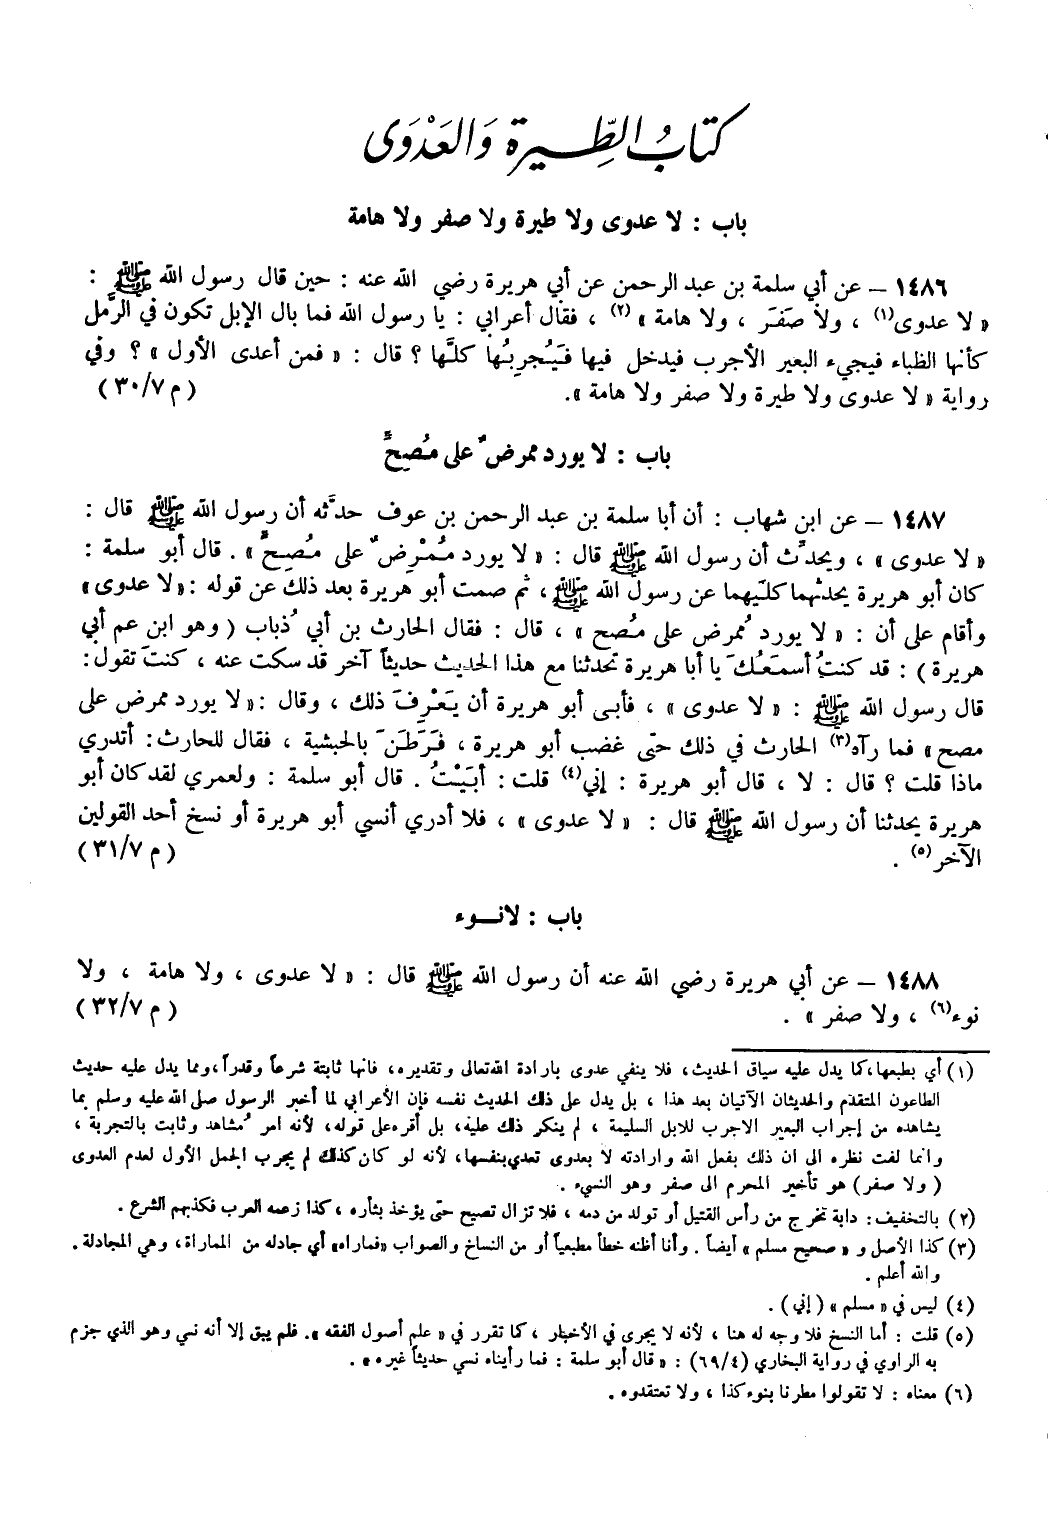 كتابُ الطِّيرة وَالعَدْوَى
باب : لا عدوى ولا طيرة ولا صفر ولا هامة
١٤٨٦ – عن أبي سلمة بن عبد الرحمن عن أبي هريرة رضي الله عنه : حين قال رسول الله ﷺ :
« لا عدوى(١) ، ولا صَفَرَ ، ولا هامة »(٢) ، فقال أعرابي : يا رسول الله فما بال الإبل تكون في الرَّمل
كأنها الظباء فيجيء البعير الأجرب فيدخل فيها فَيُجرِبُها كلَّها ؟ قال : « فمن أعدى الأول » ؟ وفي
رواية « لا عدوى ولا طيرة ولا صفر ولا هامة ». (م ٣٠/٧)
باب : لا يورد ممرضٌ على مُصِحٍّ
١٤٨٧ – عن ابن شهاب : أن أبا سلمة بن عبد الرحمن بن عوف حدثَّه أن رسول الله ﷺ قال :
« لا عدوى » ، ويحدِّث أن رسول الله ﷺ قال : « لا يورد مُمْرِضٌ على مُصِحٍّ » . قال أبو سلمة :
كان أبو هريرة يحدثهما كلتيهما عن رسول الله ﷺ ، ثم صمت أبو هريرة بعد ذلك عن قوله : « لا عدوى »
وأقام على أن : « لا يورد مُمرض على مُصح » ، قال : فقال الحارث بن أبي ذُباب ( وهو ابن عم أبي
هريرة ) : قد كنتُ أسمَعُكَ يا أبا هريرة تحدثنا مع هذا الحديث حديثاً آخر قد سكت عنه ، كنتَ تقول :
قال رسول الله ﷺ : « لا عدوى » ، فأبى أبو هريرة أن يَعْرِفَ ذلك ، وقال : « لا يورد ممرض على
مصح » فما رآه(٣) الحارث في ذلك حتى غضب أبو هريرة ، فَرَطَنَ بالحبشية ، فقال للحارث : أتدري
ماذا قلت ؟ قال : لا ، قال أبو هريرة : إني(٤) قلت : أبَيْتُ . قال أبو سلمة : ولعمري لقد كان أبو
هريرة يحدثنا أن رسول الله ﷺ قال : « لا عدوى » ، فلا أدري أنسي أبو هريرة أو نسخ أحد القولين
الآخر(٥) . (م ٣١/٧)
باب : لا نـوء
١٤٨٨ – عن أبي هريرة رضي الله عنه أن رسول الله ﷺ قال : « لا عدوى ، ولا هامة ، ولا
نوء(٦) ، ولا صفر » . (م ٣٢/٧)
(١) أي بطبعها،كما يدل عليه سياق الحديث، فلا ينفي عدوى بارادة الله تعالى وتقديره، فانها ثابتة شرعاً وقدراً،ومما يدل عليه حديث
الطاعون المتقدم والحديثان الآتيان بعد هذا ، بل يدل على ذلك الحديث نفسه فإن الأعرابي لما أخبر الرسول صلى الله عليه وسلم بما
يشاهده من إجراب البعير الاجرب للابل السليمة ، لم ينكر ذلك عليه، بل أقره على قوله، لأنه امر مُشاهد وثابت بالتجربة ،
وانما لفت نظره الى ان ذلك بفعل الله وارادته لا بعدوى تعدي بنفسها، لأنه لو كان كذلك لم يجرب الجمل الأول لعدم العدوى
( ولا صفر ) هو تأخير المحرم الى صفر وهو النسيء .
(٢) بالتخفيف : دابة تخرج من رأس القتيل أو تولد من دمه ، فلا تزال تصيح حتى يؤخذ بثأره ، كذا زعمه العرب فكذبهم الشرع .
(٣) كذا الأصل و « صحيح مسلم » أيضاً . وأنا أظنه خطأ مطبعياً أو من النساخ والصواب «فماراه» أي جادله من المماراة، وهي المجادلة .
والله أعلم .
(٤) ليس في « مسلم » ( إني ) .
(٥) قلت : أما النسخ فلا وجه له هنا ، لأنه لا يجري في الأخبار ، كما تقرر في « علم أصول الفقه ». فلم يبق إلا أنه نسي وهو الذي جزم
به الراوي في رواية البخاري (٦٩/٤) : « قال أبو سلمة : فما رأيناه نسي حديثاً غيره » .
(٦) معناه : لا تقولوا مطرنا بنوء كذا ، ولا تعتقدوه .